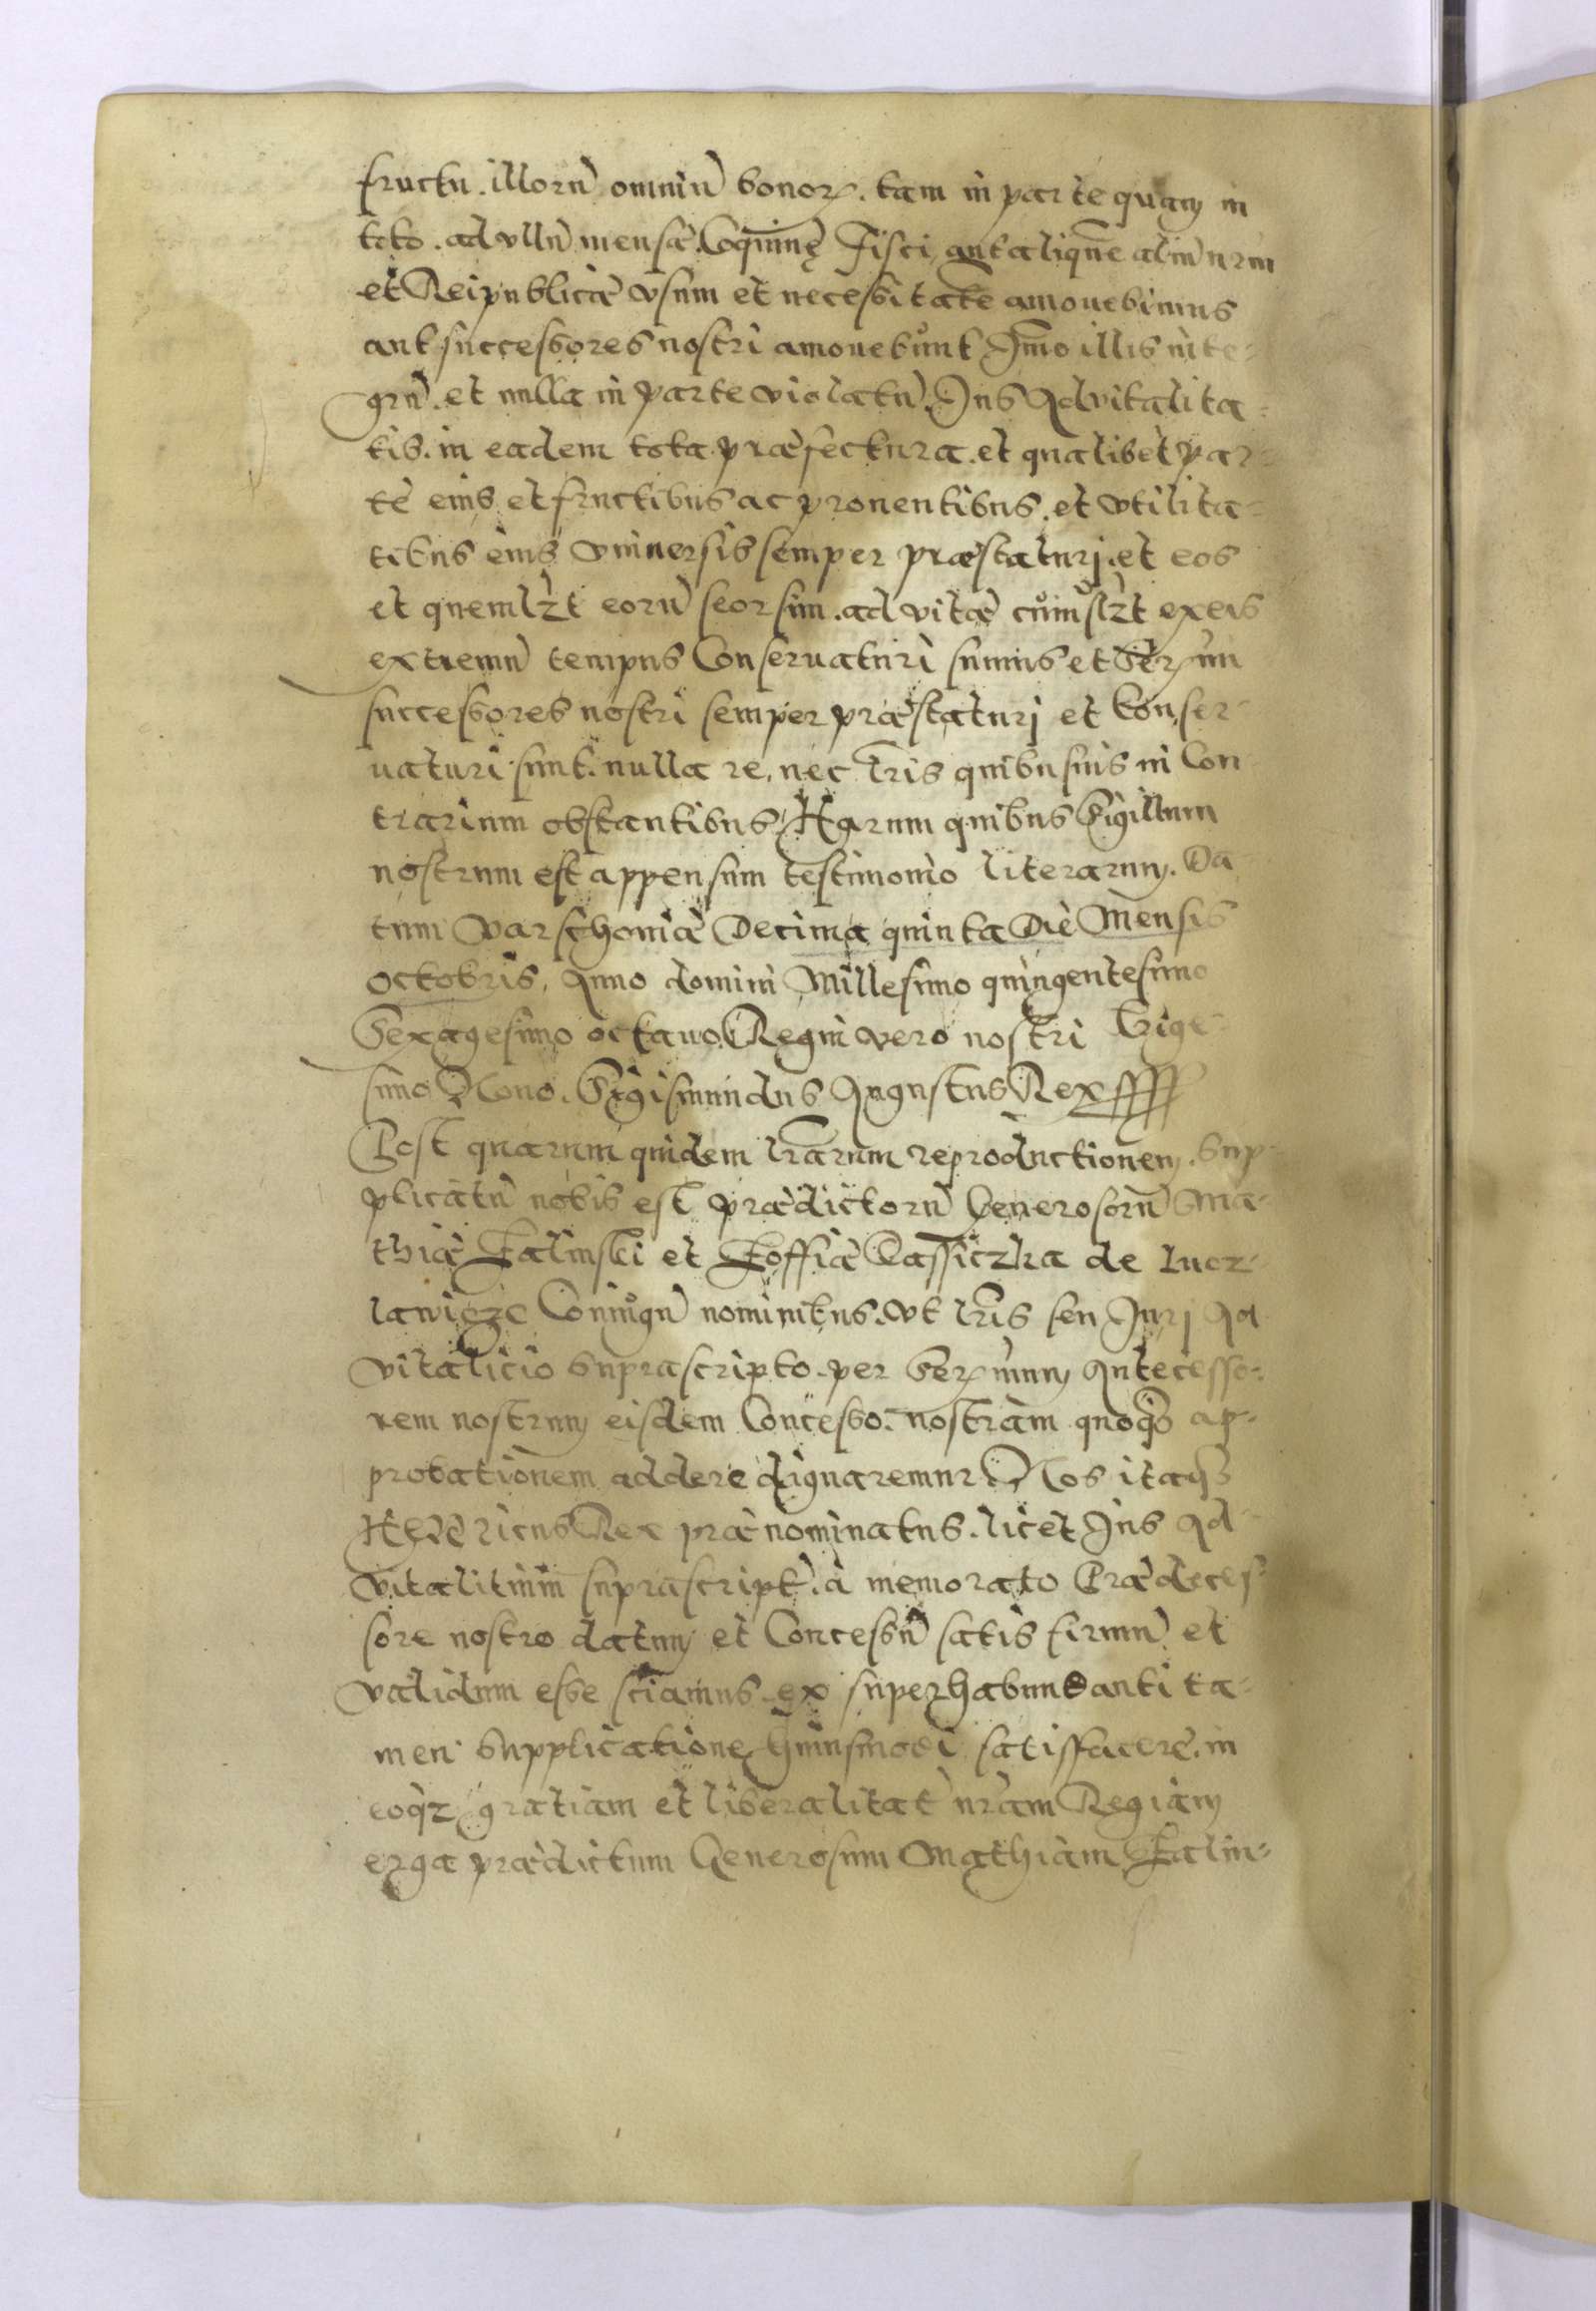 fructu. illorũ omniũ bonoꝝ. tam in parte quam in
toto. ad vllũ mensæ Coquinę Fisci aut aliquẽ aliũ nrm̃
et Reipublicæ vsum et necessitatẽ amouebimus
aut successores nostri amouebunt Im̃o illis inte-
grũ. et nulla in parte violatũ. Ius Aduitalita-
tis. in eadem tota præfectura. et qualibet par-
te eius et fructibus ac prouentibus. et vtilita-
tibus eius vniuersis semper præstaturi. et eos
et quemlꝫt eorũ seorsim. ad vitæ cuiuslꝫt ex eis
extremũ tempus Conseruaturi sumus et Serꝫmi
successores nostri semper præstaturi et Conser-
uaturi sunt. nulla re, nec lr̃is quibusuis in Con
trarium obstantibus. Harum quibus Sigillum
nostrum est appensum testimonio literarum. Da
tum Varschouiæ Decima quinta Die Mensis
Octobris, Anno domini Millesimo quingentesimo
Sexagesimo octauo. Regni vero nostri Trige-
simo Nono. Sigismundus Augustus Rex
Post quarum quidem lr̃arum reproductionem. Sup-
plicatũ nobis est prædictorũ Generosorũ Ma-
thiæ Zalinski et Zoffiæ Passiczka de Lucz-
lawicze Coniugũ nominibus. vt lr̃is seu Iuri Ad
vitalicio Suprascripto. per Serꝫmum Antecesso-
rem nostrum eisdem Concesso. nostram quoqꝫ ap-
probationem addere dignaremur. Nos itaqꝫ
HENricus Rex prænominatus. licet Ius Ad-
vitalitium suprascript̃. à memorato Prædeces-
sore nostro datum et Concessũ satis firmũ et
validum esse sciamus. ex superhabundanti ta-
men Supplicatione huiusmodi satisfacere. in
eoqꝫ gratiam et liberalitat̃ nr̃am Regiam
erga prædictum Generosum Mathiam Zalin-